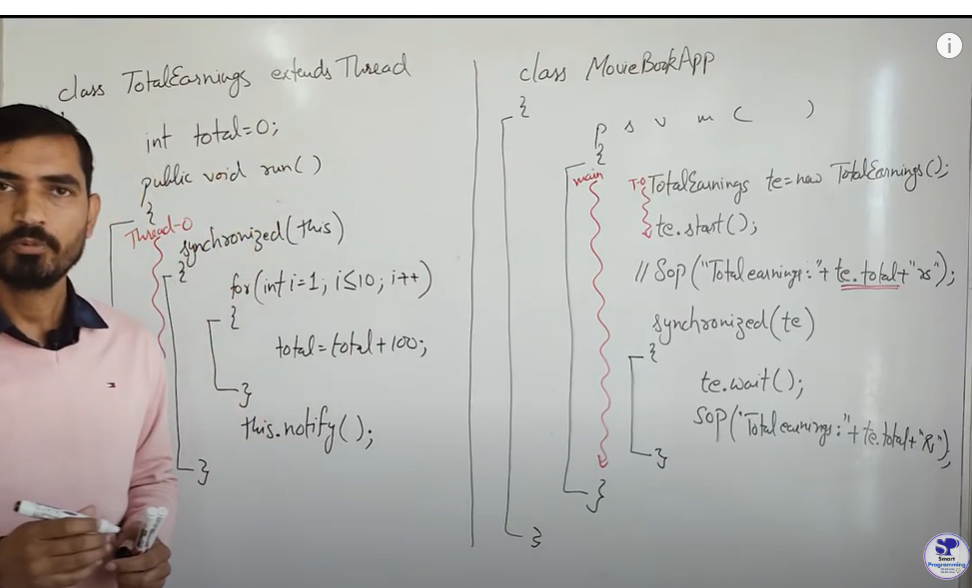 class TotalEarnings extends Thread
int total=0;
public void run()
{
Thread-0
synchronized(this)
{
for(int i=1; i≤10; i++)
{
total=total+100;
}
this.notify();
}
class MovieBookApp
{
p s v m ( )
{
main
T-0
TotalEarnings te=new TotalEarnings();
te.start();
//Sop("Total earnings:"+te.total+"rs");
synchronized(te)
{
te.wait();
SOP("Total earnings:"+te.total+"Rs");
}
}
}
i
SP
Smart
Programming